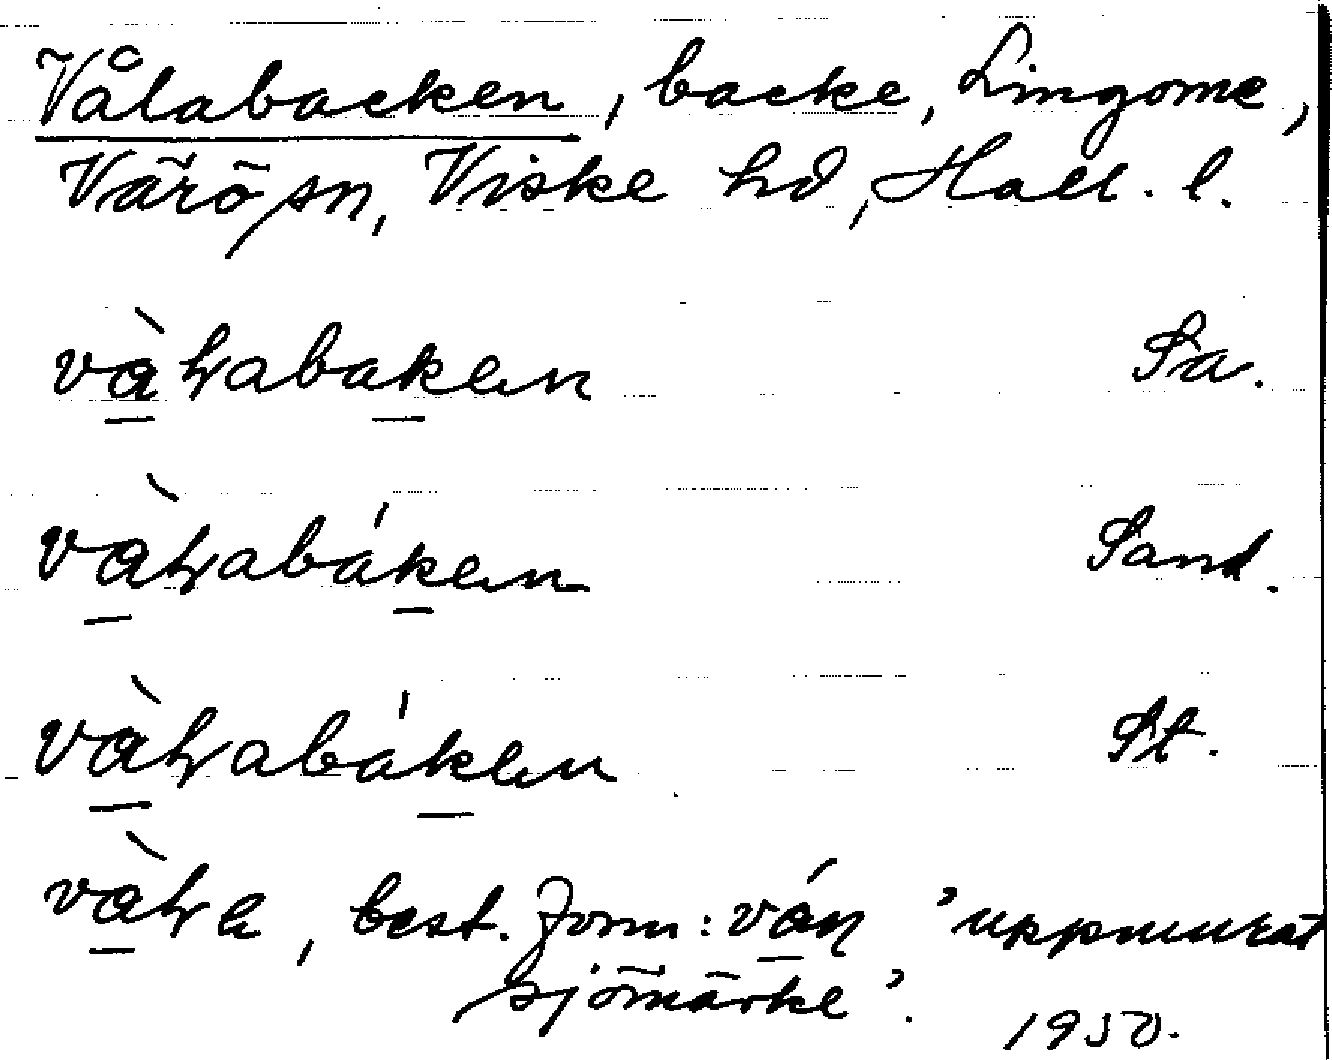 Vålabacken, backe, Lingome,
Värö sn, Viske hd, Hall. l.
vàɫabaken Sa.
vàɫabáken Sand.
vàɫabáken St.
vàɫa, best. form: váɳ 'uppmurat
sjömärke'. 1950.